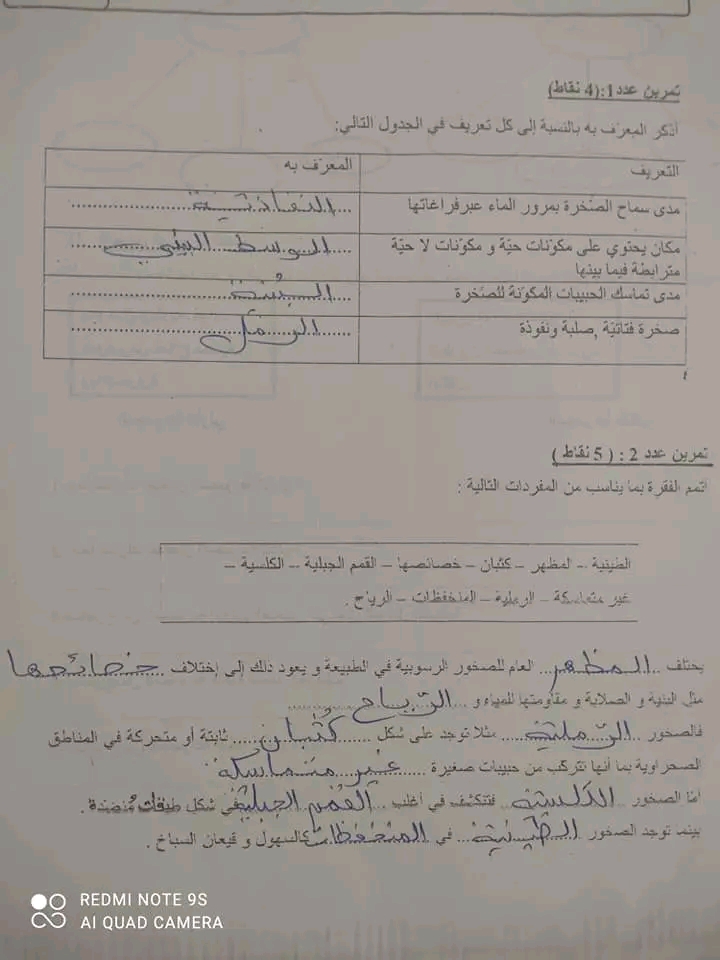 تمرين عدد1:(4 نقاط)
أذكر المعرّف به بالنسبة إلى كل تعريف في الجدول التالي:
التعريف المعرّف به
مدى سماح الصّخرة بمرور الماء عبرفراغاتها ...النفاذيّة...
مكان يحتوي على مكوّنات حيّة و مكوّنات لا حيّة ...الوسط البيئي...
مترابطة فيما بينها
مدى تماسك الحبيبات المكوّنة للصّخرة ...البُنية...
صخرة فتاتيّة ,صلبة ونفوذة ...الرمل...
تمرين عدد 2 : ( 5 نقاط )
أتمم الفقرة بما يناسب من المفردات التالية :
الطينية – المظهر – كثبان – خصائصها – القمم الجبلية – الكلسية –
غير متماسكة – الرملية – المنخفظات – الرياح .
يختلف ...المظهر... العام للصخور الرسوبية في الطبيعة و يعود ذلك إلى إختلاف ...خصائصها
مثل البنية و الصلابة و مقاومتها للمياه و ...الرّياح...
فالصخور ...الرّمليّة... مثلا توجد على شكل ...كثبان... ثابتة أو متحركة في المناطق
الصحراوية بما أنها تتركب من حبيبات صغيرة ...غير متماسكة
أمّا الصخور ...الكلسيّة... فتتكشف في أغلب ...القمم الجبلية في شكل طبقات مُنضدة .
بينما توجد الصخور ...الطّينيّة... في ...المنخفظات كالسهول و قيعان السباخ .
REDMI NOTE 9S
AI QUAD CAMERA